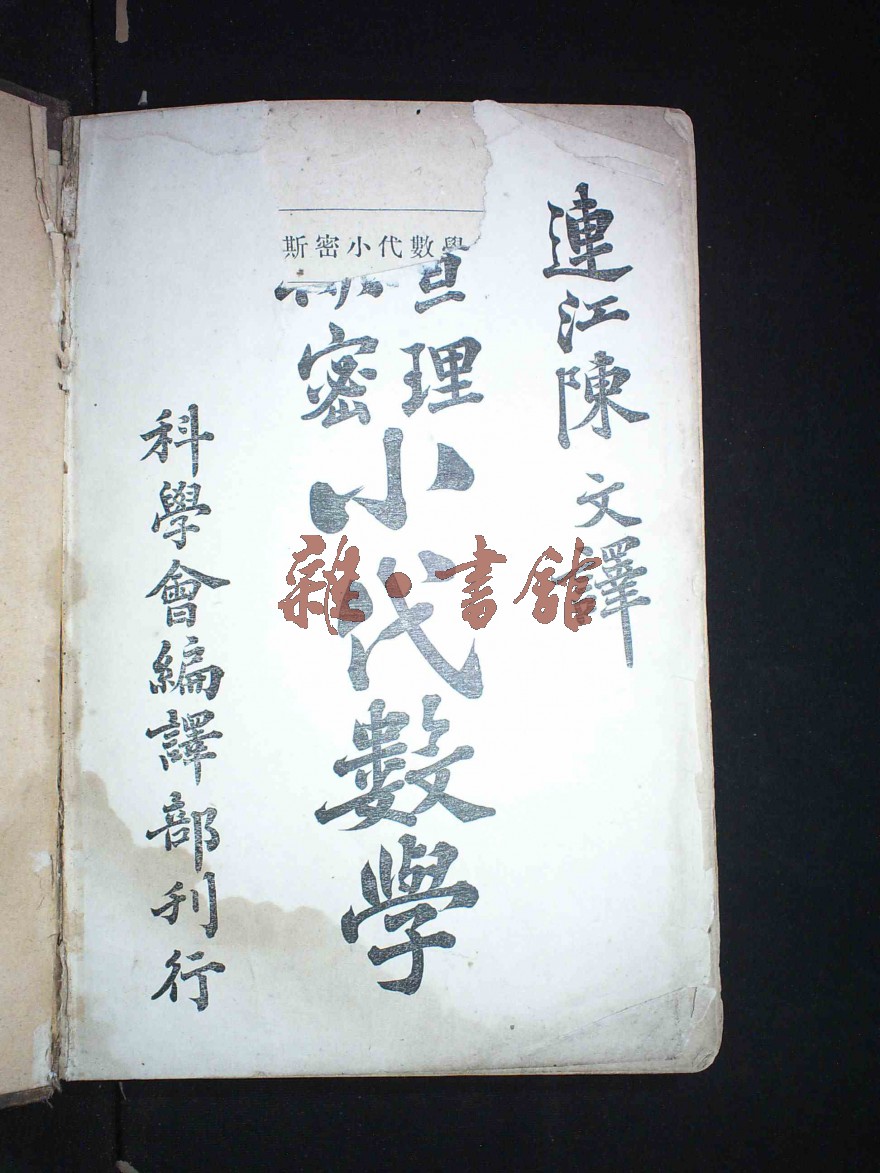 連江陳文譯
斯密小代數學
查理
斯密
小代數學
科學會編譯部刊行
雜·書館